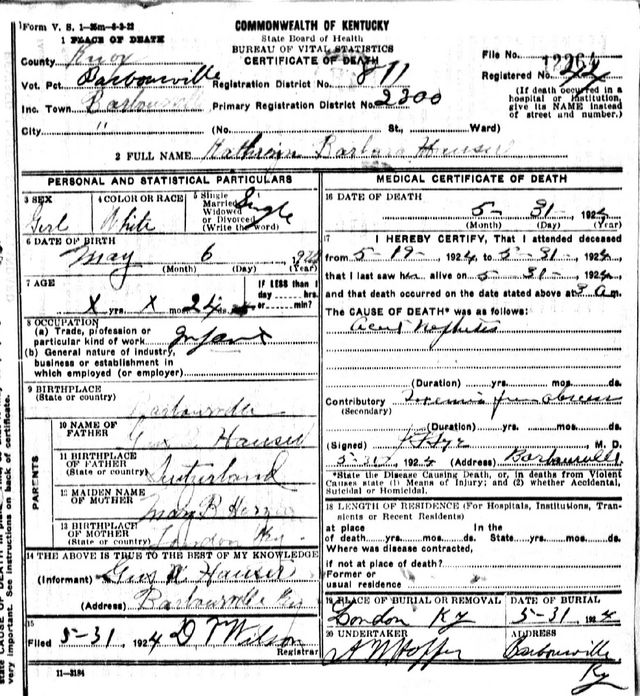 Form V. S. 1—25m—6-3-22
COMMONWEALTH OF KENTUCKY
State Board of Health
BUREAU OF VITAL STATISTICS
CERTIFICATE OF DEATH
1 PLACE OF DEATH
County Knox
Vot. Pct. Barbourville
Inc. Town Barbourville
City "
(No. St., Ward)
Registration District No. 811
Primary Registration District No. 2300
File No. 12264
Registered No.
(If death occurred in a
hospital or institution,
give its NAME instead
of street and number.)
2 FULL NAME Kathryn Barbara Hauser
PERSONAL AND STATISTICAL PARTICULARS
3 SEX
Gerl
4 COLOR OR RACE
White
5 Single
Married
Widowed
or Divorced
(Write the word)
Single
6 DATE OF BIRTH
May 6 1924
(Month) (Day) (Year)
7 AGE
X yrs. X mos. 24 ds.
IF LESS than 1
day hrs.
or min?
8 OCCUPATION
(a) Trade, profession or
particular kind of work Infant
(b) General nature of industry,
business or establishment in
which employed (or employer)
9 BIRTHPLACE
(State or country)
Barbourville
PARENTS
10 NAME OF
FATHER
Hauser
11 BIRTHPLACE
OF FATHER
(State or country)
12 MAIDEN NAME
OF MOTHER
Mary B
13 BIRTHPLACE
OF MOTHER
(State or country)
London Ky
14 THE ABOVE IS TRUE TO THE BEST OF MY KNOWLEDGE
(Informant) Hauser
(Address) Barbourville Ky
15
Filed 5-31, 1924 D T Wilson
Registrar
11—3184
MEDICAL CERTIFICATE OF DEATH
16 DATE OF DEATH
5- 31, 1924
(Month) (Day) (Year)
17 I HEREBY CERTIFY, That I attended deceased
from 5-19-, 1924 to 5-31-, 1924
that I last saw her alive on 5-31-, 1924
and that death occurred on the date stated above at 3 a m.
The CAUSE OF DEATH* was as follows:
Acut Nephritis
(Duration) yrs. mos. ds.
Contributory from abscess
(Secondary)
(Duration) yrs. mos. ds.
(Signed) M. D.
1924 (Address) Barbourville
*State the Disease Causing Death, or, in deaths from Violent
Causes state (1) Means of Injury; and (2) whether Accidental,
Suicidal or Homicidal.
18 LENGTH OF RESIDENCE (For Hospitals, Institutions, Tran-
sients or Recent Residents)
at place In the
of death yrs. mos. ds. State yrs. mos. ds.
Where was disease contracted,
if not at place of death?
Former or
usual residence
19 PLACE OF BURIAL OR REMOVAL
London Ky
DATE OF BURIAL
5-31, 1924
20 UNDERTAKER
ADDRESS
Barbourville
Ky
very important. See instructions on back of certificate.